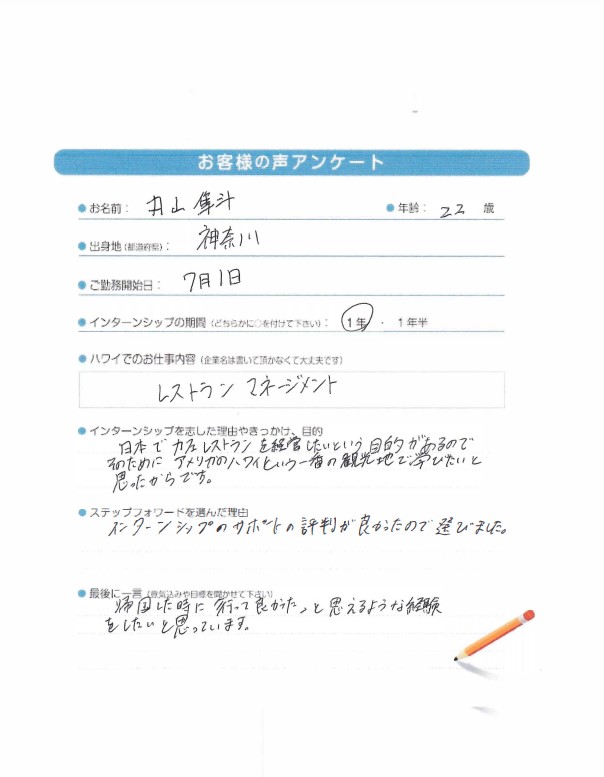 お客様の声アンケート
お名前： 丹山 隼斗 年齢： 22 歳
出身地（都道府県）： 神奈川
ご勤務開始日： 7月1日
インターンシップの期間（どちらかに○を付けて下さい）： 1年 ・ 1年半
ハワイでのお仕事内容（企業名は書いて頂かなくて大丈夫です）
レストラン マネージメント
インターンシップを志した理由やきっかけ、目的
日本でカフェレストランを経営したいという目的があるので
そのためにアメリカのハワイという一番の観光地で学びたいと
思ったからです。
ステップフォワードを選んだ理由
インターンシップのサポートの評判が良かったので選びました。
最後に一言（意気込みや目標を聞かせて下さい）
帰国した時に行って良かた、と思えるような経験
をしたいと思っています。